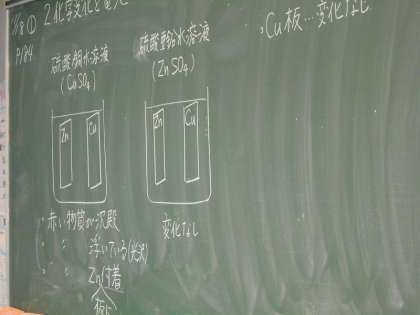 11/8① 2.化学変化と電池
P184
硫酸銅水溶液
(CuSO₄)
Zn Cu
硫酸亜鉛水溶液
(ZnSO₄)
Zn Cu
・赤い物質が沈殿
・ 〃 浮いている(光沢)
・ 〃 Zn付着
板に
変化なし
・Cu板…変化なし